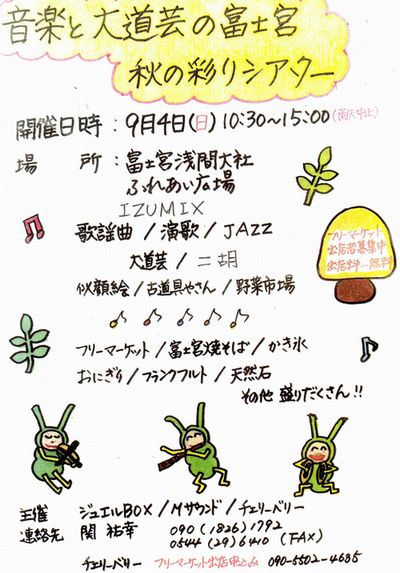 音楽と大道芸の富士宮
秋の彩りシアター
開催日時：9月4日(日)10:30~15:00(雨天中止)
場　所：富士宮浅間大社
ふれあい広場
IZUMIX
歌謡曲/演歌/JAZZ
大道芸/二胡
似顔絵/古道具やさん/野菜市場
フリーマーケット
出店者募集中
出店料…無料
フリーマーケット/富士宮焼そば/かき氷
おにぎり/フランクフルト/天然石
その他 盛りだくさん!!
主催 ジュエルBOX/Mサウンド/チェリーベリー
連絡先 関 祐幸 090(1826)1792
0544(29)6410 (FAX)
チェリーベリー フリーマーケット出店申込み 090-5502-4685